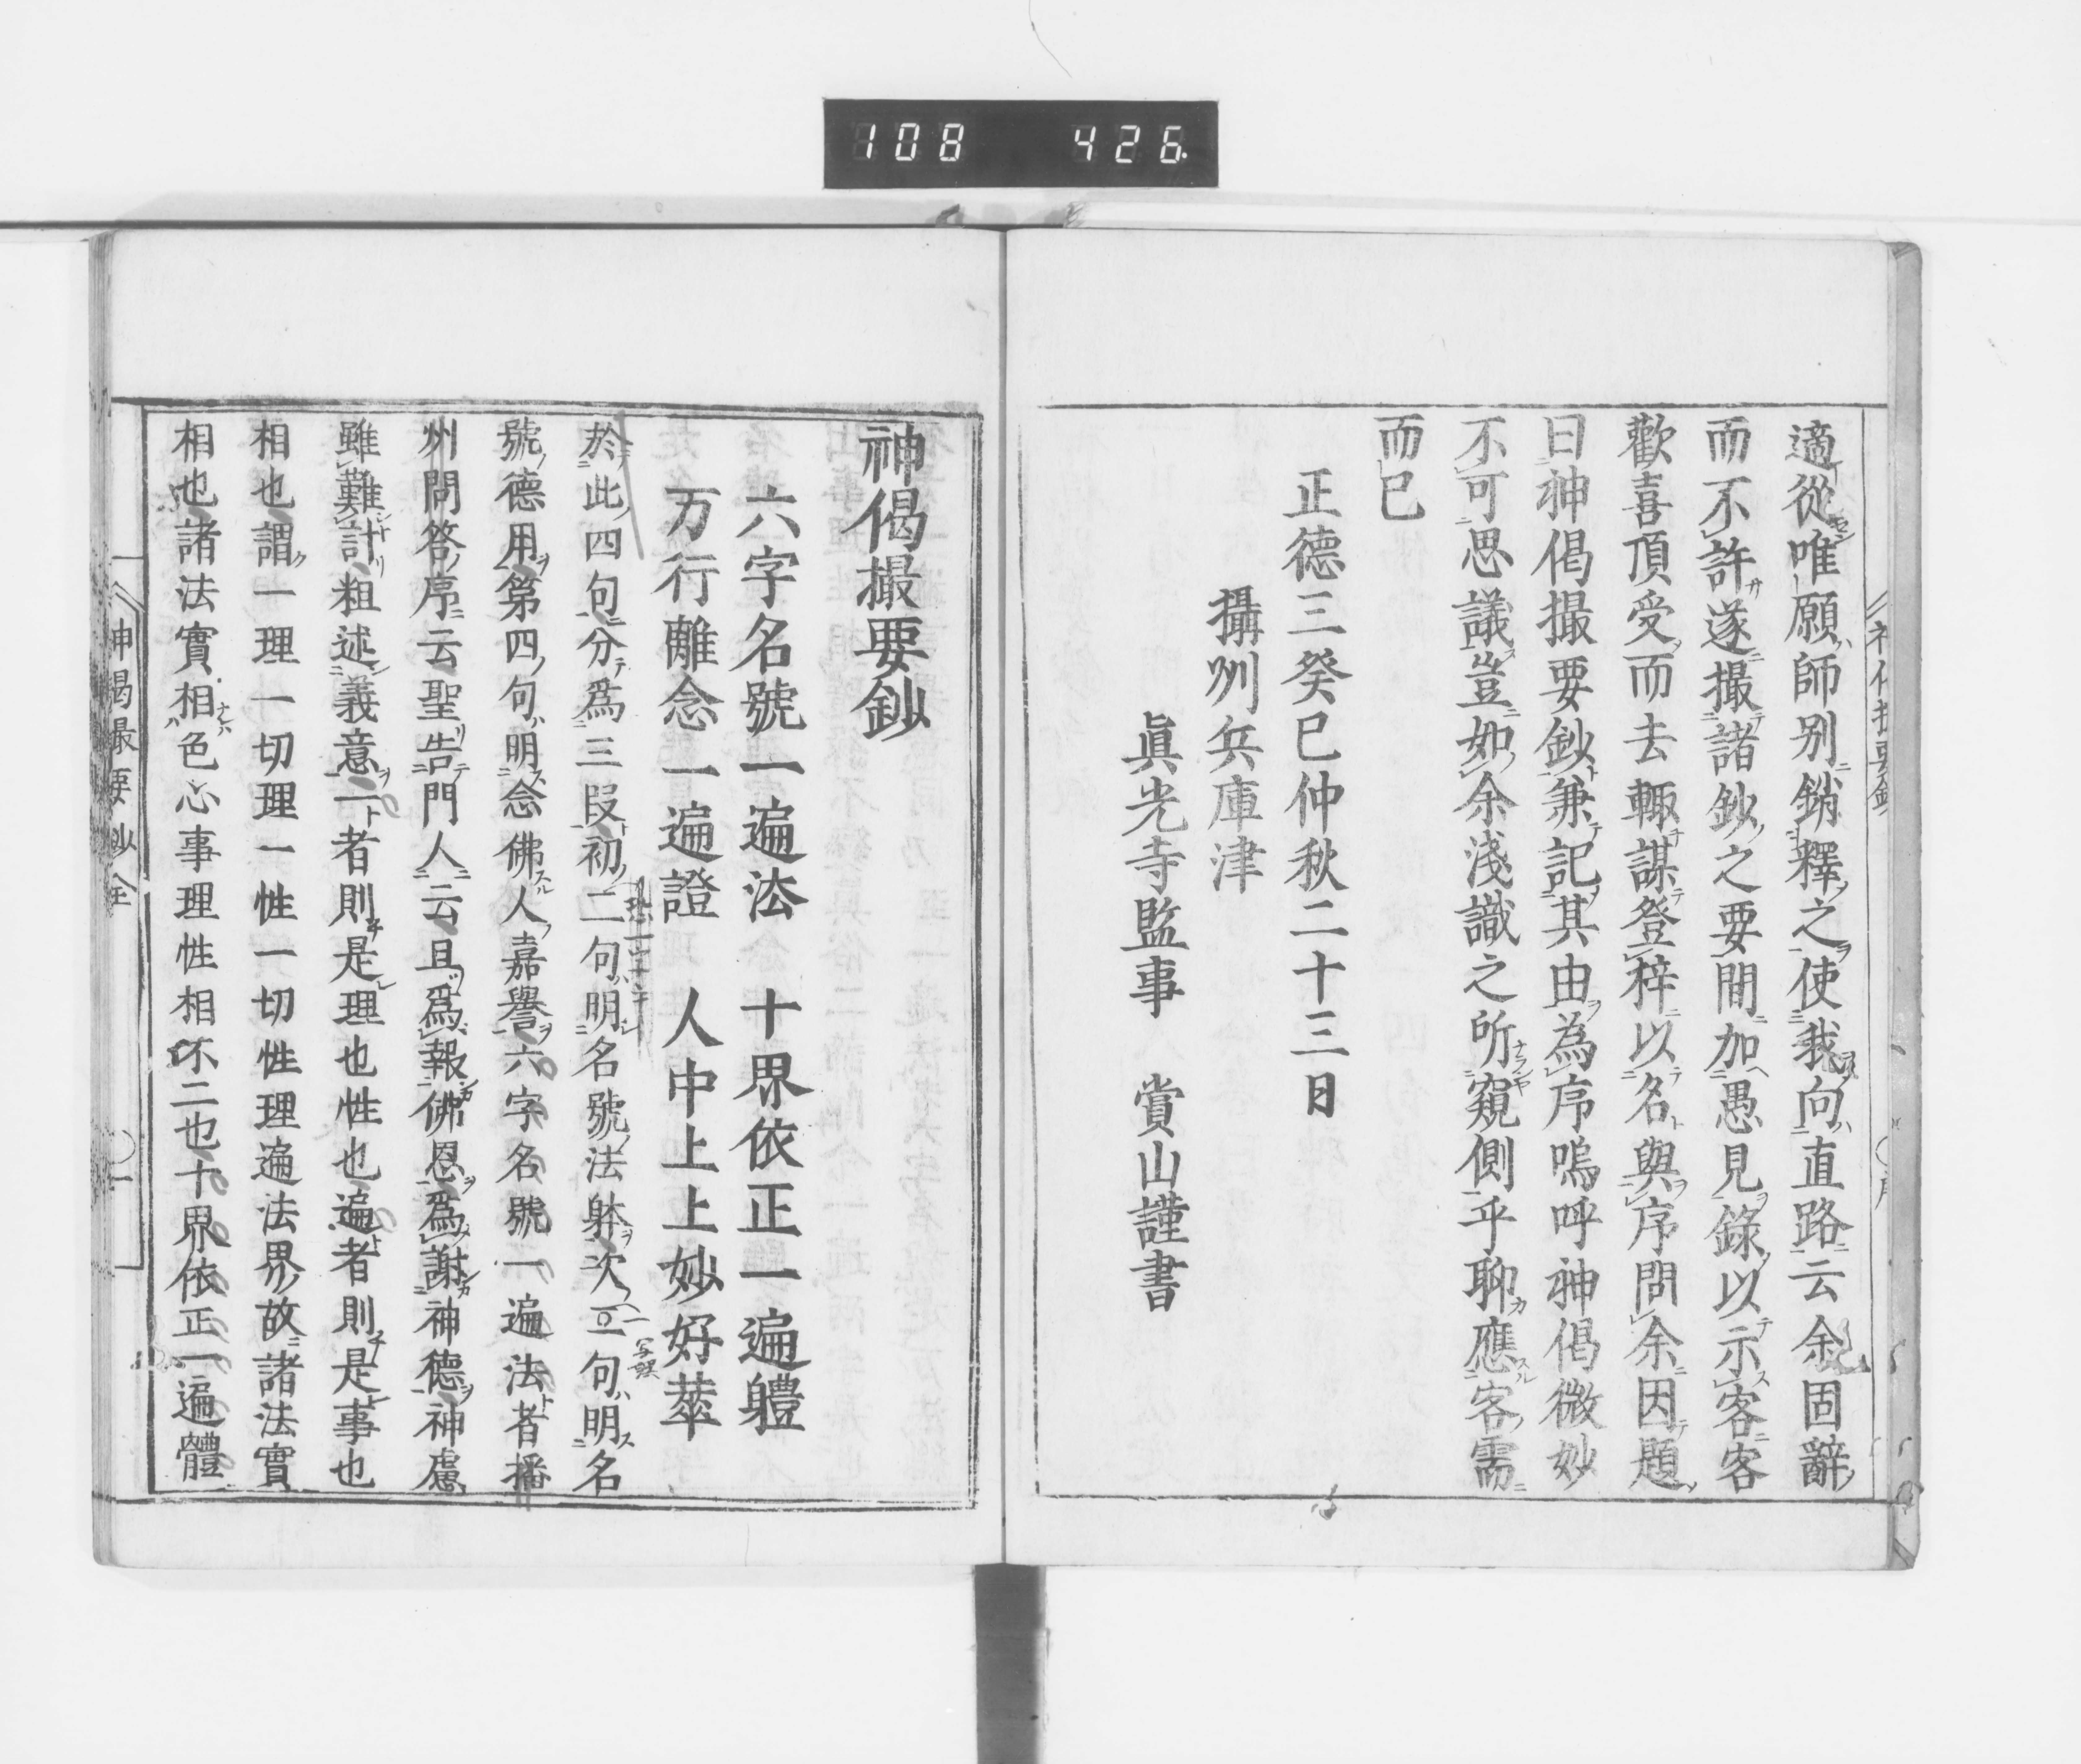 108 426
適從唯願師別銷釋之使我向直路云余固辭
而不許遂撮諸鈔之要間加愚見錄以示客客
歡喜頂受而去輙謀登梓以名與序問余因題
曰神偈撮要鈔兼記其由為序嗚呼神偈微妙
不可思議豈如余淺識之所窺側乎聊應客需
而已
正德三癸巳仲秋二十三日
攝州兵庫津
眞光寺監事 賞山謹書
神偈撮要鈔
六字名號一遍法 十界依正一遍體
万行離念一遍證 人中上上妙好華
於此四句分爲三段初二句明名號法躰次一句明名
號德用第四句明念佛人嘉譽六字名號一遍法者播
州問答序云聖告門人云且爲報佛恩爲謝神德神慮
雖難計粗述義意一者則是理也性也遍者則是事也
相也謂一理一切理一性一切性理遍法界故諸法實
相也諸法實相色心事理性相不二也十界依正一遍體
神偈最要鈔全 一